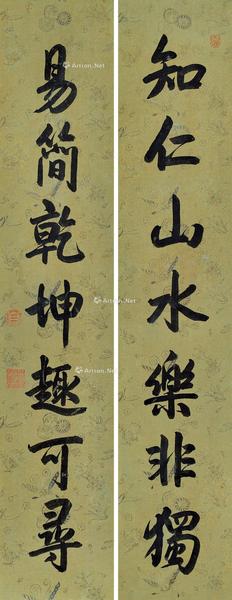 知仁山水樂非獨
易簡乾坤趣可尋
Artron.Net
Artron.Net
Artron.Net
Artron.Net